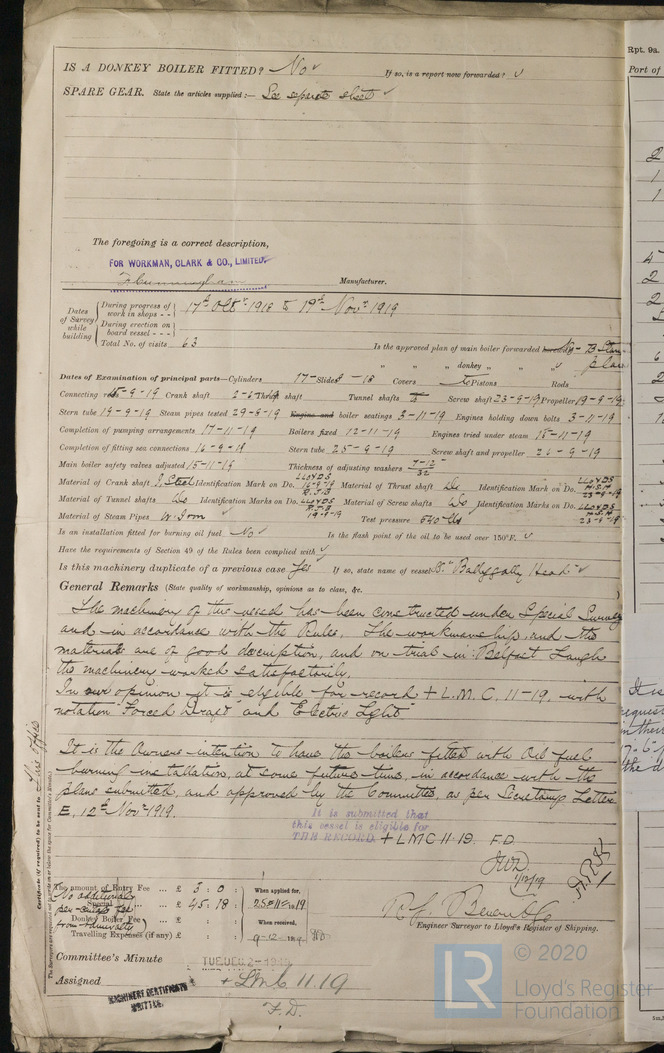 IS A DONKEY BOILER FITTED? No ✓ If so, is a report now forwarded? ✓
SPARE GEAR. State the articles supplied:— See separate sheet ✓
The foregoing is a correct description,
FOR WORKMAN, CLARK & CO., LIMITED.
Manufacturer.
Dates of Survey while building
During progress of work in shops - - 17th Octr 1918 to 19th Novr 1919
During erection on board vessel - - -
Total No. of visits 63 Is the approved plan of main boiler forwarded
" " " donkey " "
Dates of Examination of principal parts—Cylinders 17- Slides -18 Covers Pistons Rods
Connecting rods 15-9-19 Crank shaft Thrust shaft Tunnel shafts Screw shaft 23-9-19 Propeller 19-9-19
Stern tube 19-9-19 Steam pipes tested 29-8-19 Engine and boiler seatings 3-11-19 Engines holding down bolts 3-11-19
Completion of pumping arrangements 17-11-19 Boilers fixed 12-11-19 Engines tried under steam 18-11-19
Completion of fitting sea connections 16-9-19 Stern tube 25-9-19 Screw shaft and propeller 26-9-19
Main boiler safety valves adjusted 15-11-19 Thickness of adjusting washers
Material of Crank shaft Steel Identification Mark on Do. LLOYDS Material of Thrust shaft Do Identification Mark on Do. LLOYDS 23-9-19
Material of Tunnel shafts Do Identification Marks on Do. LLOYDS 19-9-19 Material of Screw shafts Do Identification Marks on Do. LLOYDS 23-9-19
Material of Steam Pipes W. Iron ✓ Test pressure 540 lbs
Is an installation fitted for burning oil fuel No ✓ Is the flash point of the oil to be used over 150°F. ✓
Have the requirements of Section 49 of the Rules been complied with ✓
Is this machinery duplicate of a previous case Yes If so, state name of vessel "Ballygally Head" ✓
General Remarks (State quality of workmanship, opinions as to class, &c.
The machinery of this vessel has been constructed under Special Survey
and in accordance with the Rules. The workmanship and the
materials are of good description, and on trial in Belfast Lough
the machinery worked satisfactorily.
In our opinion it is eligible for record + L.M.C. 11-19. with
notation "Forced Draft" and Electric Light
It is the Owners intention to have the boilers fitted with Oil fuel
burning installation, at some future time, in accordance with the
plans submitted, and approved by the Committee, as per Secretary's Letter
E, 12th Novr 1919.
It is submitted that
this vessel is eligible for
THE RECORD. + LMC 11.19. F.D.
1/12/19
Certificate (if required) to be sent to This office
The amount of Entry Fee ... £ 3 : 0 : When applied for,
Special ... £ 45 : 18 : 25.11.1919
Donkey Boiler Fee ... £ : : When received,
Travelling Expenses (if any) £ : : 9-12-1919
No additional
per centage fee
from Admiralty
Engineer Surveyor to Lloyd's Register of Shipping.
Committee's Minute TUE. DEC. 2-1919
Assigned + LMC 11.19
F.D.
MACHINERY CERTIFICATE
WRITTEN.
Rpt. 9a.
Port of
© 2020
LR
Lloyd's Register
Foundation